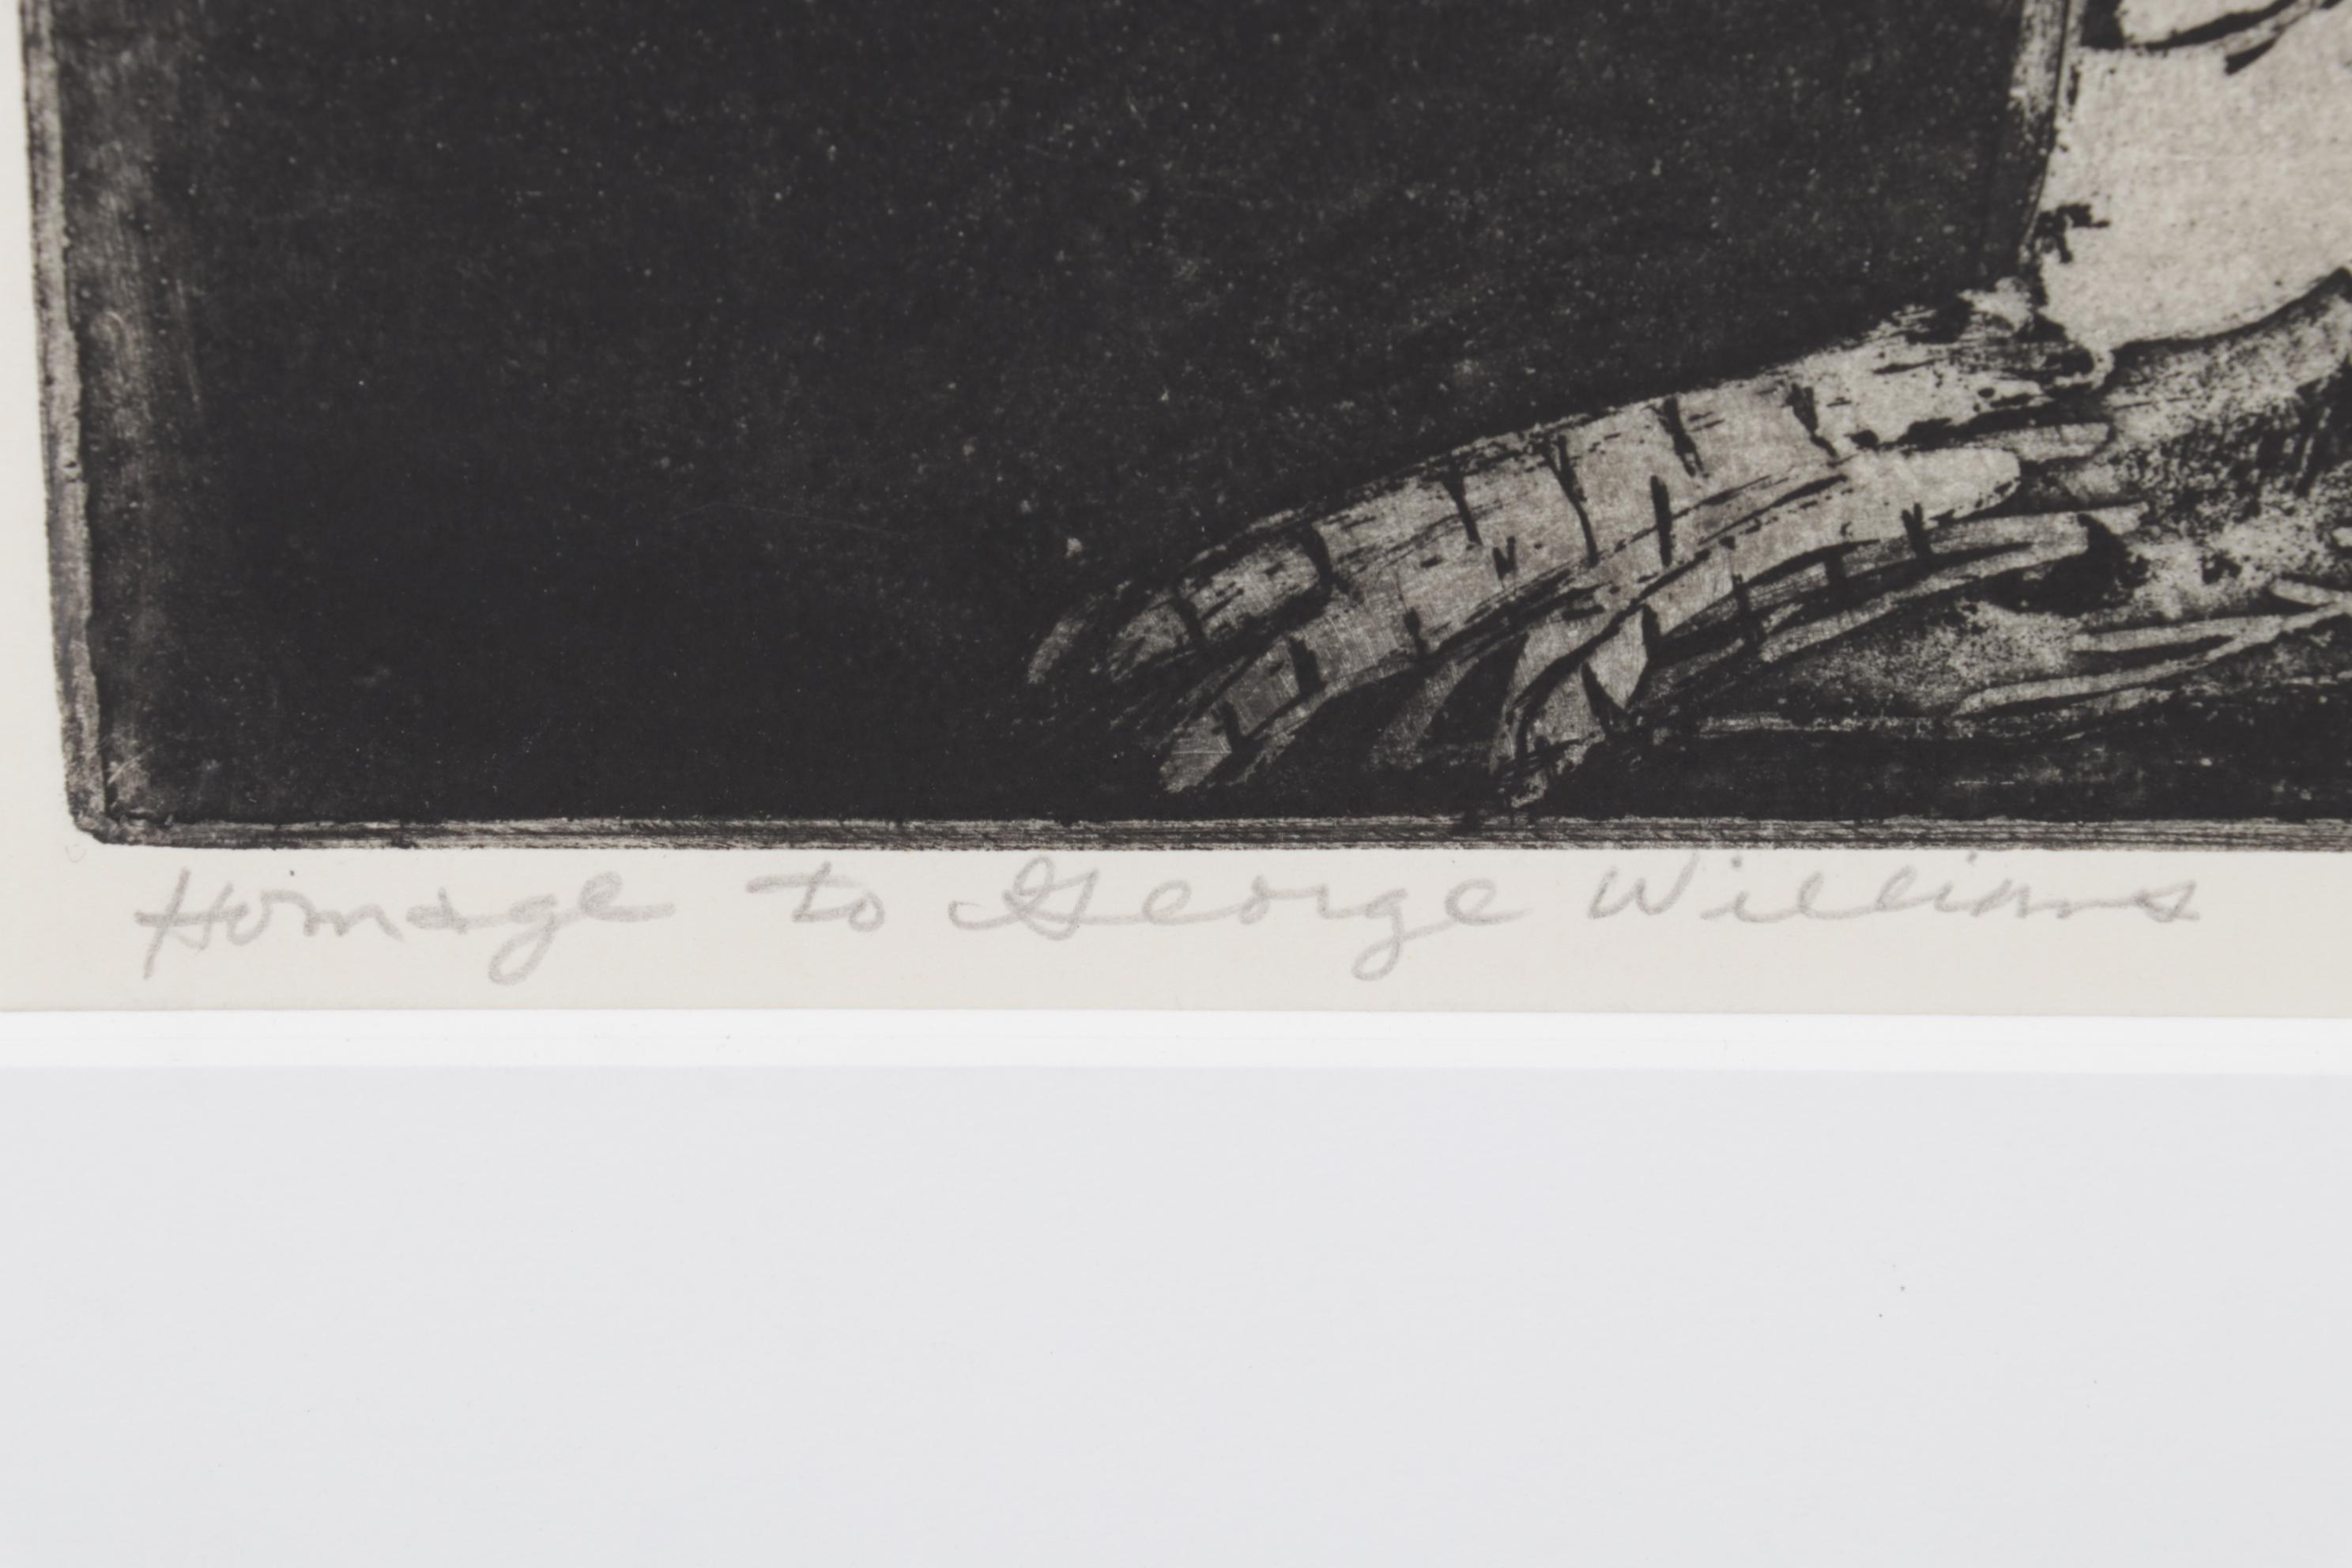 Homage to George Williams